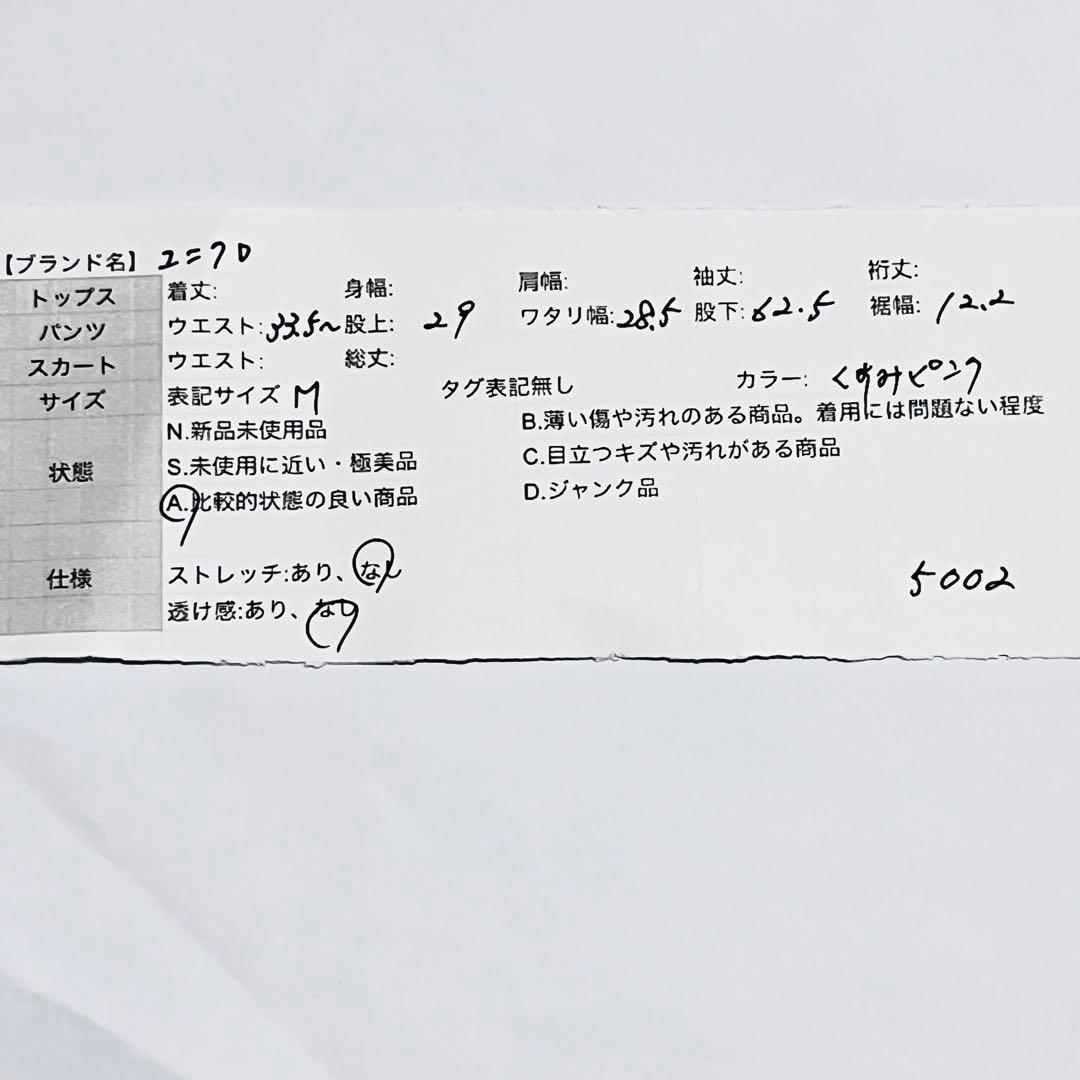 【ブランド名】ユニクロ
トップス 着丈: 身幅: 肩幅: 袖丈: 裄丈:
パンツ ウエスト:33.5~ 股上: 29 ワタリ幅:28.5 股下:62.5 裾幅: 12.2
スカート ウエスト: 総丈:
サイズ 表記サイズ M タグ表記無し カラー: くすみピンク
状態 N.新品未使用品 B.薄い傷や汚れのある商品。着用には問題ない程度
S.未使用に近い・極美品 C.目立つキズや汚れがある商品
A.比較的状態の良い商品 D.ジャンク品
仕様 ストレッチ:あり、なし 5002
透け感:あり、なし